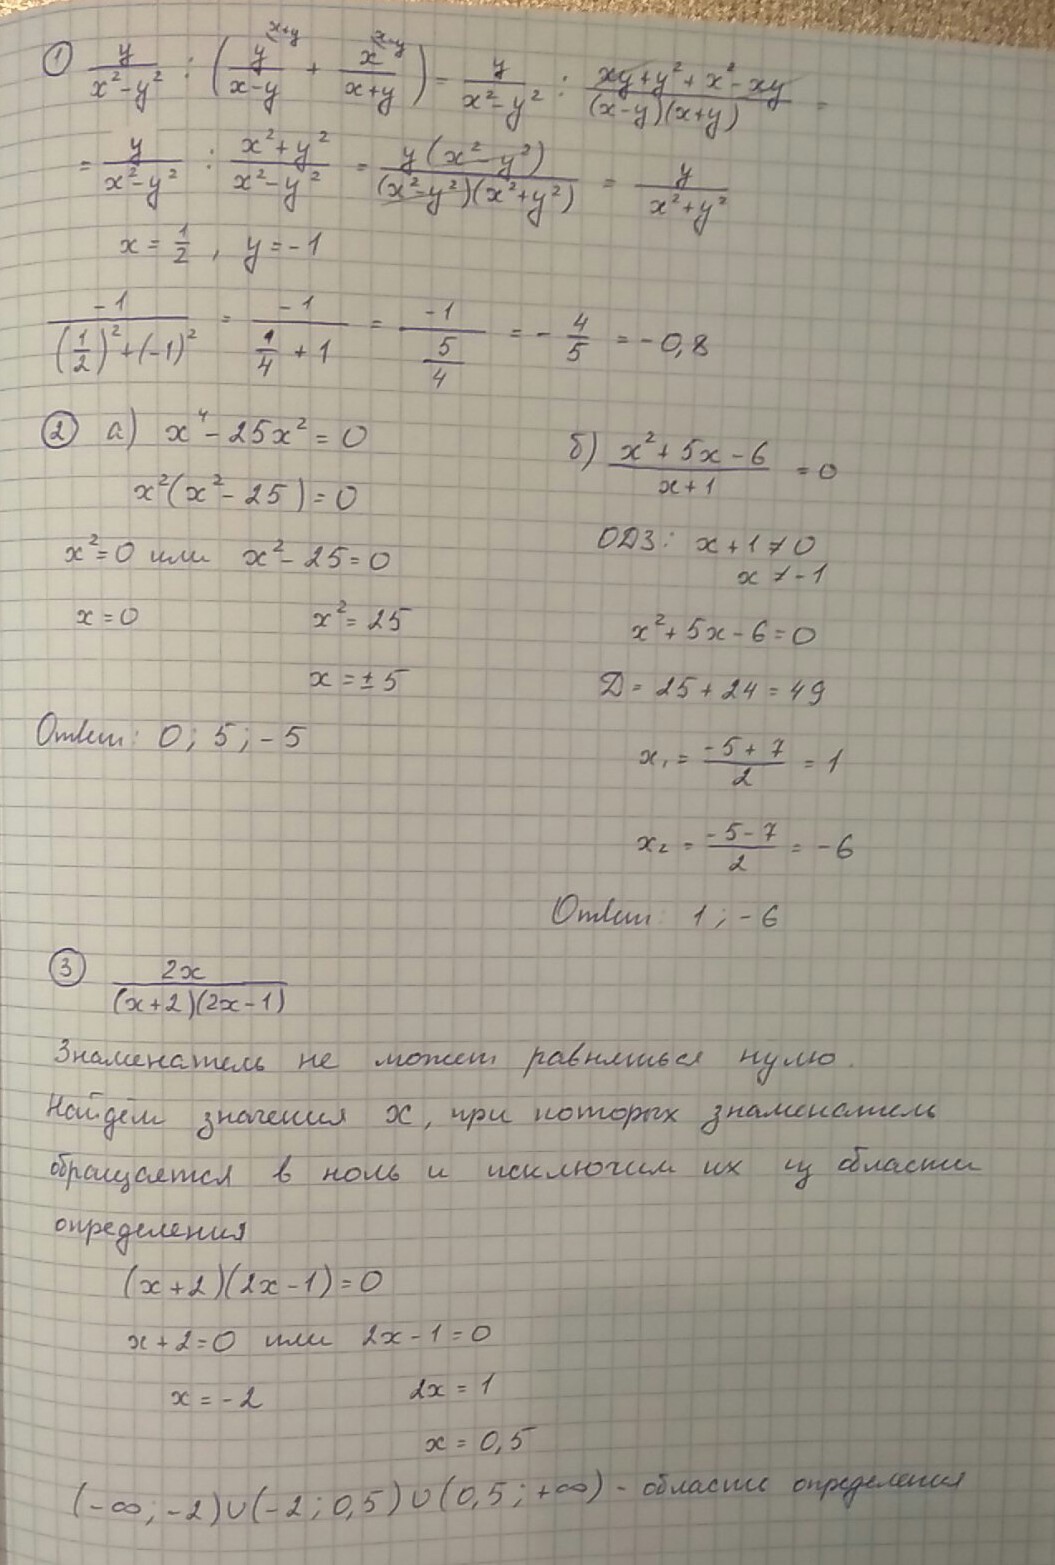 ① y/(x²-y²) : (y/(x-y) ^(x+y) + x/(x+y) ^(x-y)) = y/(x²-y²) : (xy+y²+x²-xy)/((x-y)(x+y)) =
= y/(x²-y²) : (x²+y²)/(x²-y²) = y(x²-y²)/((x²-y²)(x²+y²)) = y/(x²+y²)
x = 1/2, y = -1
-1/((1/2)²+(-1)²) = -1/(1/4 + 1) = -1/(5/4) = - 4/5 = -0,8
② а) x⁴ - 25x² = 0
x²(x² - 25) = 0
x² = 0 или x² - 25 = 0
x = 0 x² = 25
x = ±5
Ответ: 0; 5; -5
б) (x² + 5x - 6)/(x+1) = 0
ОДЗ: x + 1 ≠ 0
x ≠ -1
x² + 5x - 6 = 0
Д = 25 + 24 = 49
x₁ = (-5 + 7)/2 = 1
x₂ = (-5 - 7)/2 = -6
Ответ: 1; -6
③ 2x/((x+2)(2x-1))
Знаменатель не может равняться нулю.
Найдём значения x, при которых знаменатель
обращается в ноль и исключим их из области
определения
(x+2)(2x-1) = 0
x + 2 = 0 или 2x - 1 = 0
x = -2 2x = 1
x = 0,5
(-∞; -2)∪(-2; 0,5)∪(0,5; +∞) - область определения